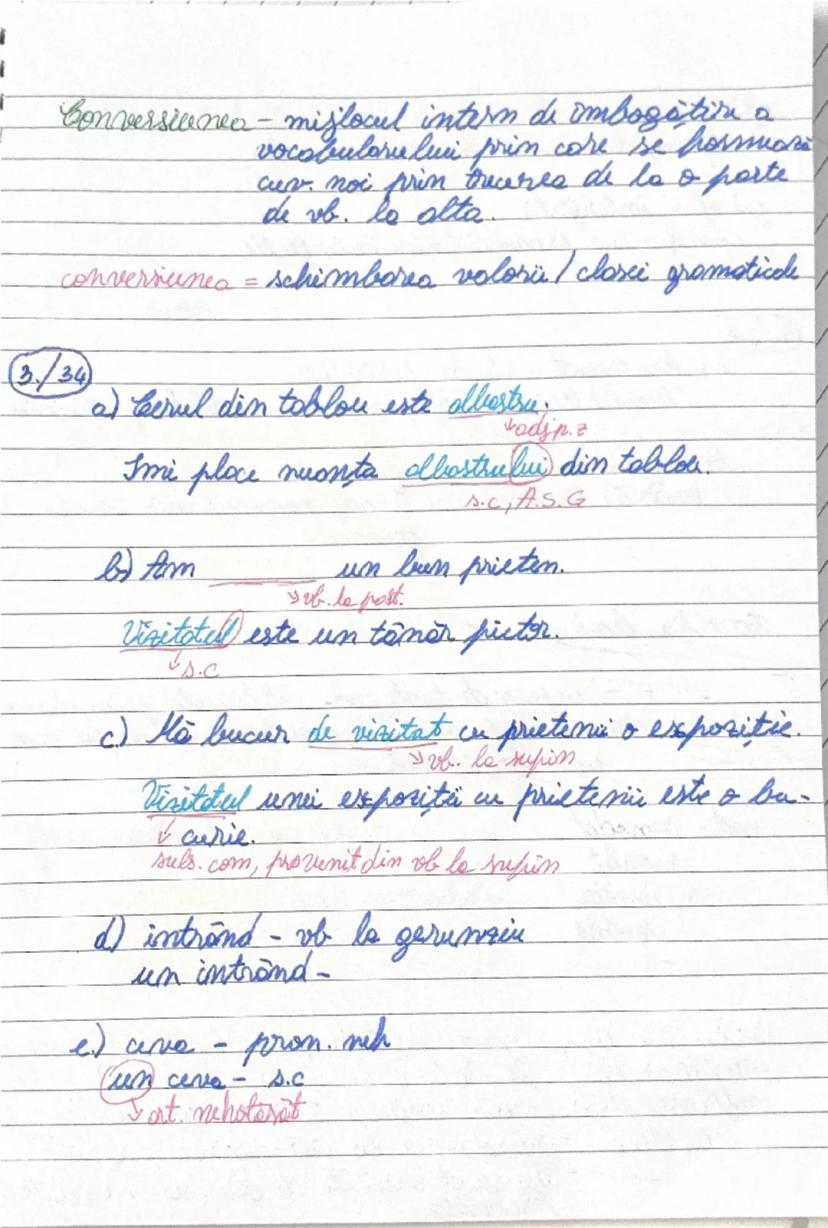 Conversiunea - mijlocul intern de îmbogățire a
vocabularului prin care se formează
cuv. noi prin trecerea de la o parte
de vb. la alta.
conversiunea = schimbarea valorii / clasei gramaticale
3./34
a) Cerul din tablou este albastru.
↳ adj p.z
Îmi place nuanța albastrului din tablou.
s.c, A.S.G
b) Am ______ un bun prieten.
↳ vb. la part.
Vizitatul este un tânăr pictor.
↳ s.c
c.) Mă bucur de vizitat cu prietenii o expoziție.
↳ vb. la supin
Vizitatul unei expoziții cu prietenii este o bu-
curie.
subs. com, provenit din vb la supin
d) intrând - vb la gerunziu
un intrând -
e.) ceva - pron. neh
un ceva - s.c
↳ art. nehotărât